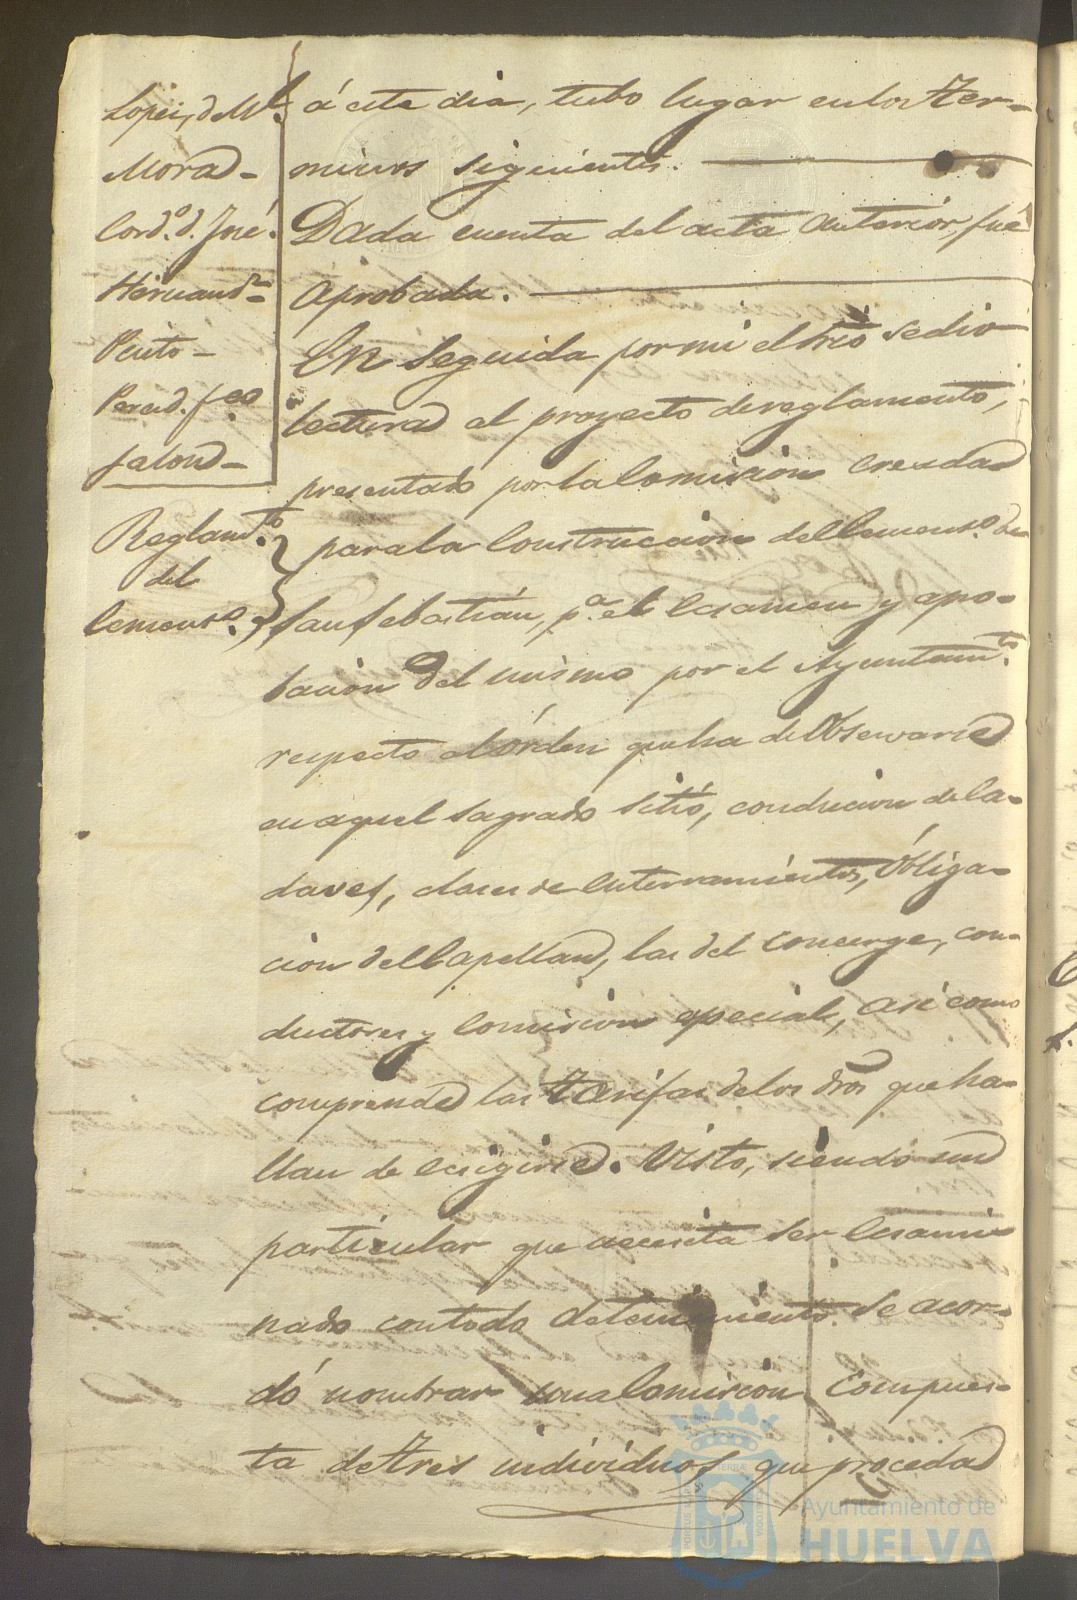 Lopez, d. Ml.
Mora-
Cord.º d. José.
Hernand.z-
Pinto-
Pereid. f.co
Jalond-
Reglam.to
del
Cemens.o
á este dia, tubo lugar en los ter-
minos siguientes.
Dada cuenta del acta anterior, fué
aprobada.
En seguida por mi el Srio se dio
lectura al proyecto de reglamento,
presentado por la Comision creada
para la Construccion del Cemens.o de
San Sebastián, p.a el ecsamen y apro-
bacion del mismo por el Ayuntam.to
respecto al órden que ha de Observarse
en aquel sagrado sitió, conducion de ca-
daves, clases de enterramientos, Obliga-
cion del Capellan, las del concerge, con-
ductores y Comision especial, así como
comprende las tarifas de los dros que ha-
llan de ecsigirse. Visto, siendo un
particular que necesita ser ecsami-
nado con todo detenimiento se acor-
dó nombrar una Comision Compues-
ta de tres individuos que proceda
Ayuntamiento de
HUELVA